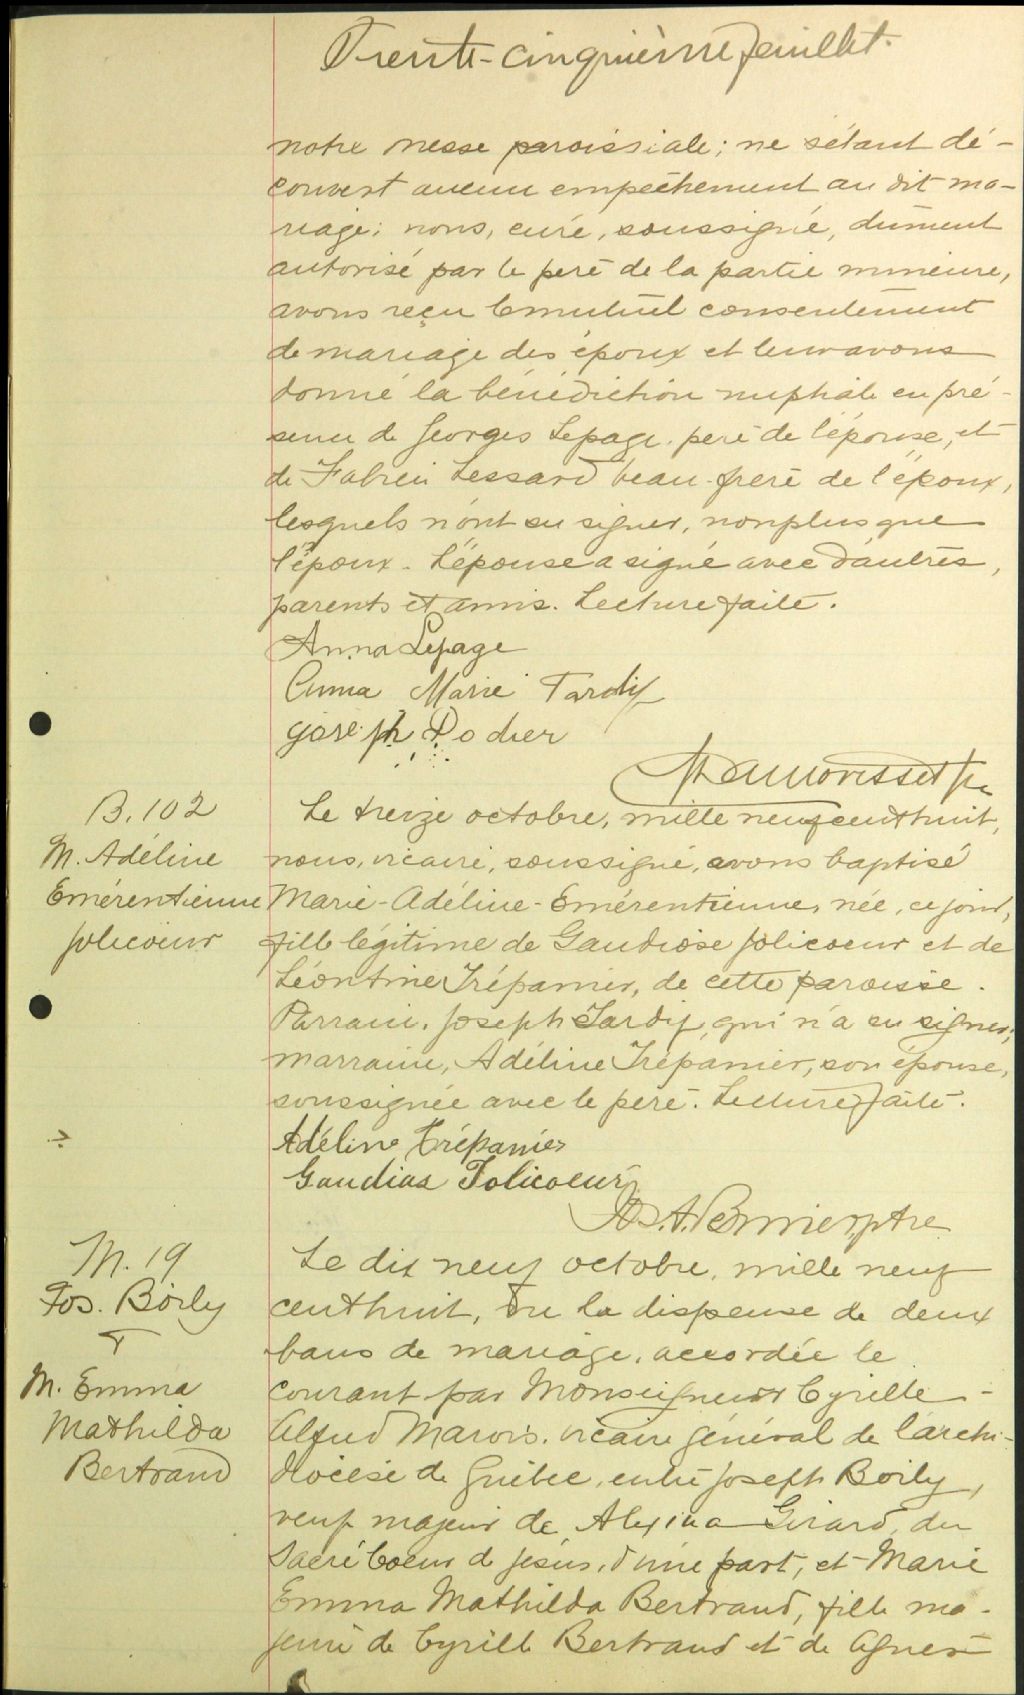 Trente-cinquième feuillet.
notre messe paroissiale; ne s'étant dé-
couvert aucun empêchement au dit ma-
riage; nous, curé, soussigné, dûment
autorisé par le père de la partie mineure,
avons reçu le mutuel consentement
de mariage des époux et leur avons
donné la bénédiction nuptiale en pré-
sence de Georges Lepage, père de l'épouse, et
de Fabien Lessard beau-frère de l'époux,
lesquels n'ont su signer, non plus que
l'époux. L'épouse a signé avec d'autres,
parents et amis. Lecture faite.
Anna Lepage
Anna Marie Tardif
Joseph Rodier
Morisset
B. 102
M. Adéline
Emérentienne
Jolicoeur
Le treize octobre, mille neuf cent huit,
nous, vicaire, soussigné, avons baptisé
Marie-Adéline-Emérentienne, née, ce jour,
fille légitime de Gaudiose Jolicoeur et de
Léontine Trépanier, de cette paroisse.
Parrain, Joseph Tardif, qui n'a su signer;
marraine, Adéline Trépanier, son épouse,
soussignée avec le père. Lecture faite.
Adéline Trépanier
Gaudias Jolicoeur
Bernier ptre
M. 19
Jos. Boily
&
M. Emma
Mathilda
Bertrand
Le dix neuf octobre, mille neuf
cent huit, Vu la dispense de deux
bans de mariage, accordée le
courant par Monseigneur Cyrille-
Alfred Marois, vicaire général de l'archi-
diocèse de Québec, entre Joseph Boily,
veuf majeur de Alexina Girard, du
Sacré Coeur de Jésus, d'une part, et Marie
Emma Mathilda Bertrand, fille ma-
jeure de Cyrille Bertrand et de Agnès